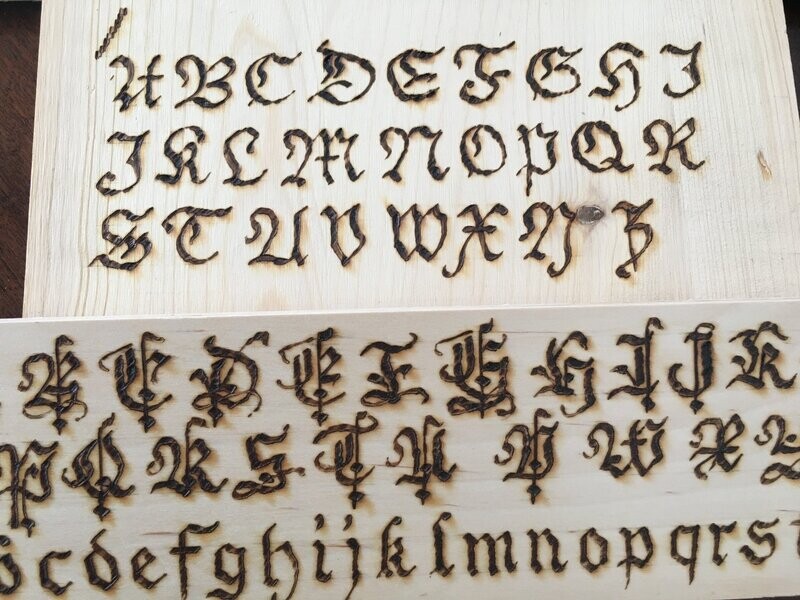 A B C D E F G H I
J K L M N O P Q R
S T U V W X Y Z
B C D E F G H I J K
P Q R S T U V W X
b c d e f g h i j k l m n o p q r s t